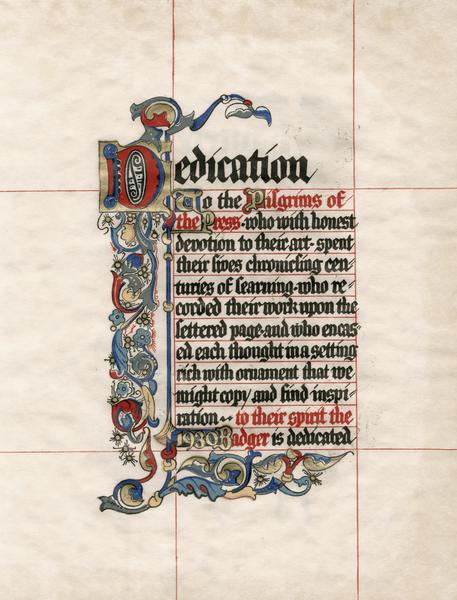 Dedication
To the Pilgrims of
the Press·who with honest
devotion to their art·spent
their lives chronicling cen-
turies of learning·who re-
corded their work upon the
lettered page·and who encas-
ed each thought in a setting
rich with ornament that we
might copy and find inspi-
ration·· to their spirit the
1930 Badger is dedicated